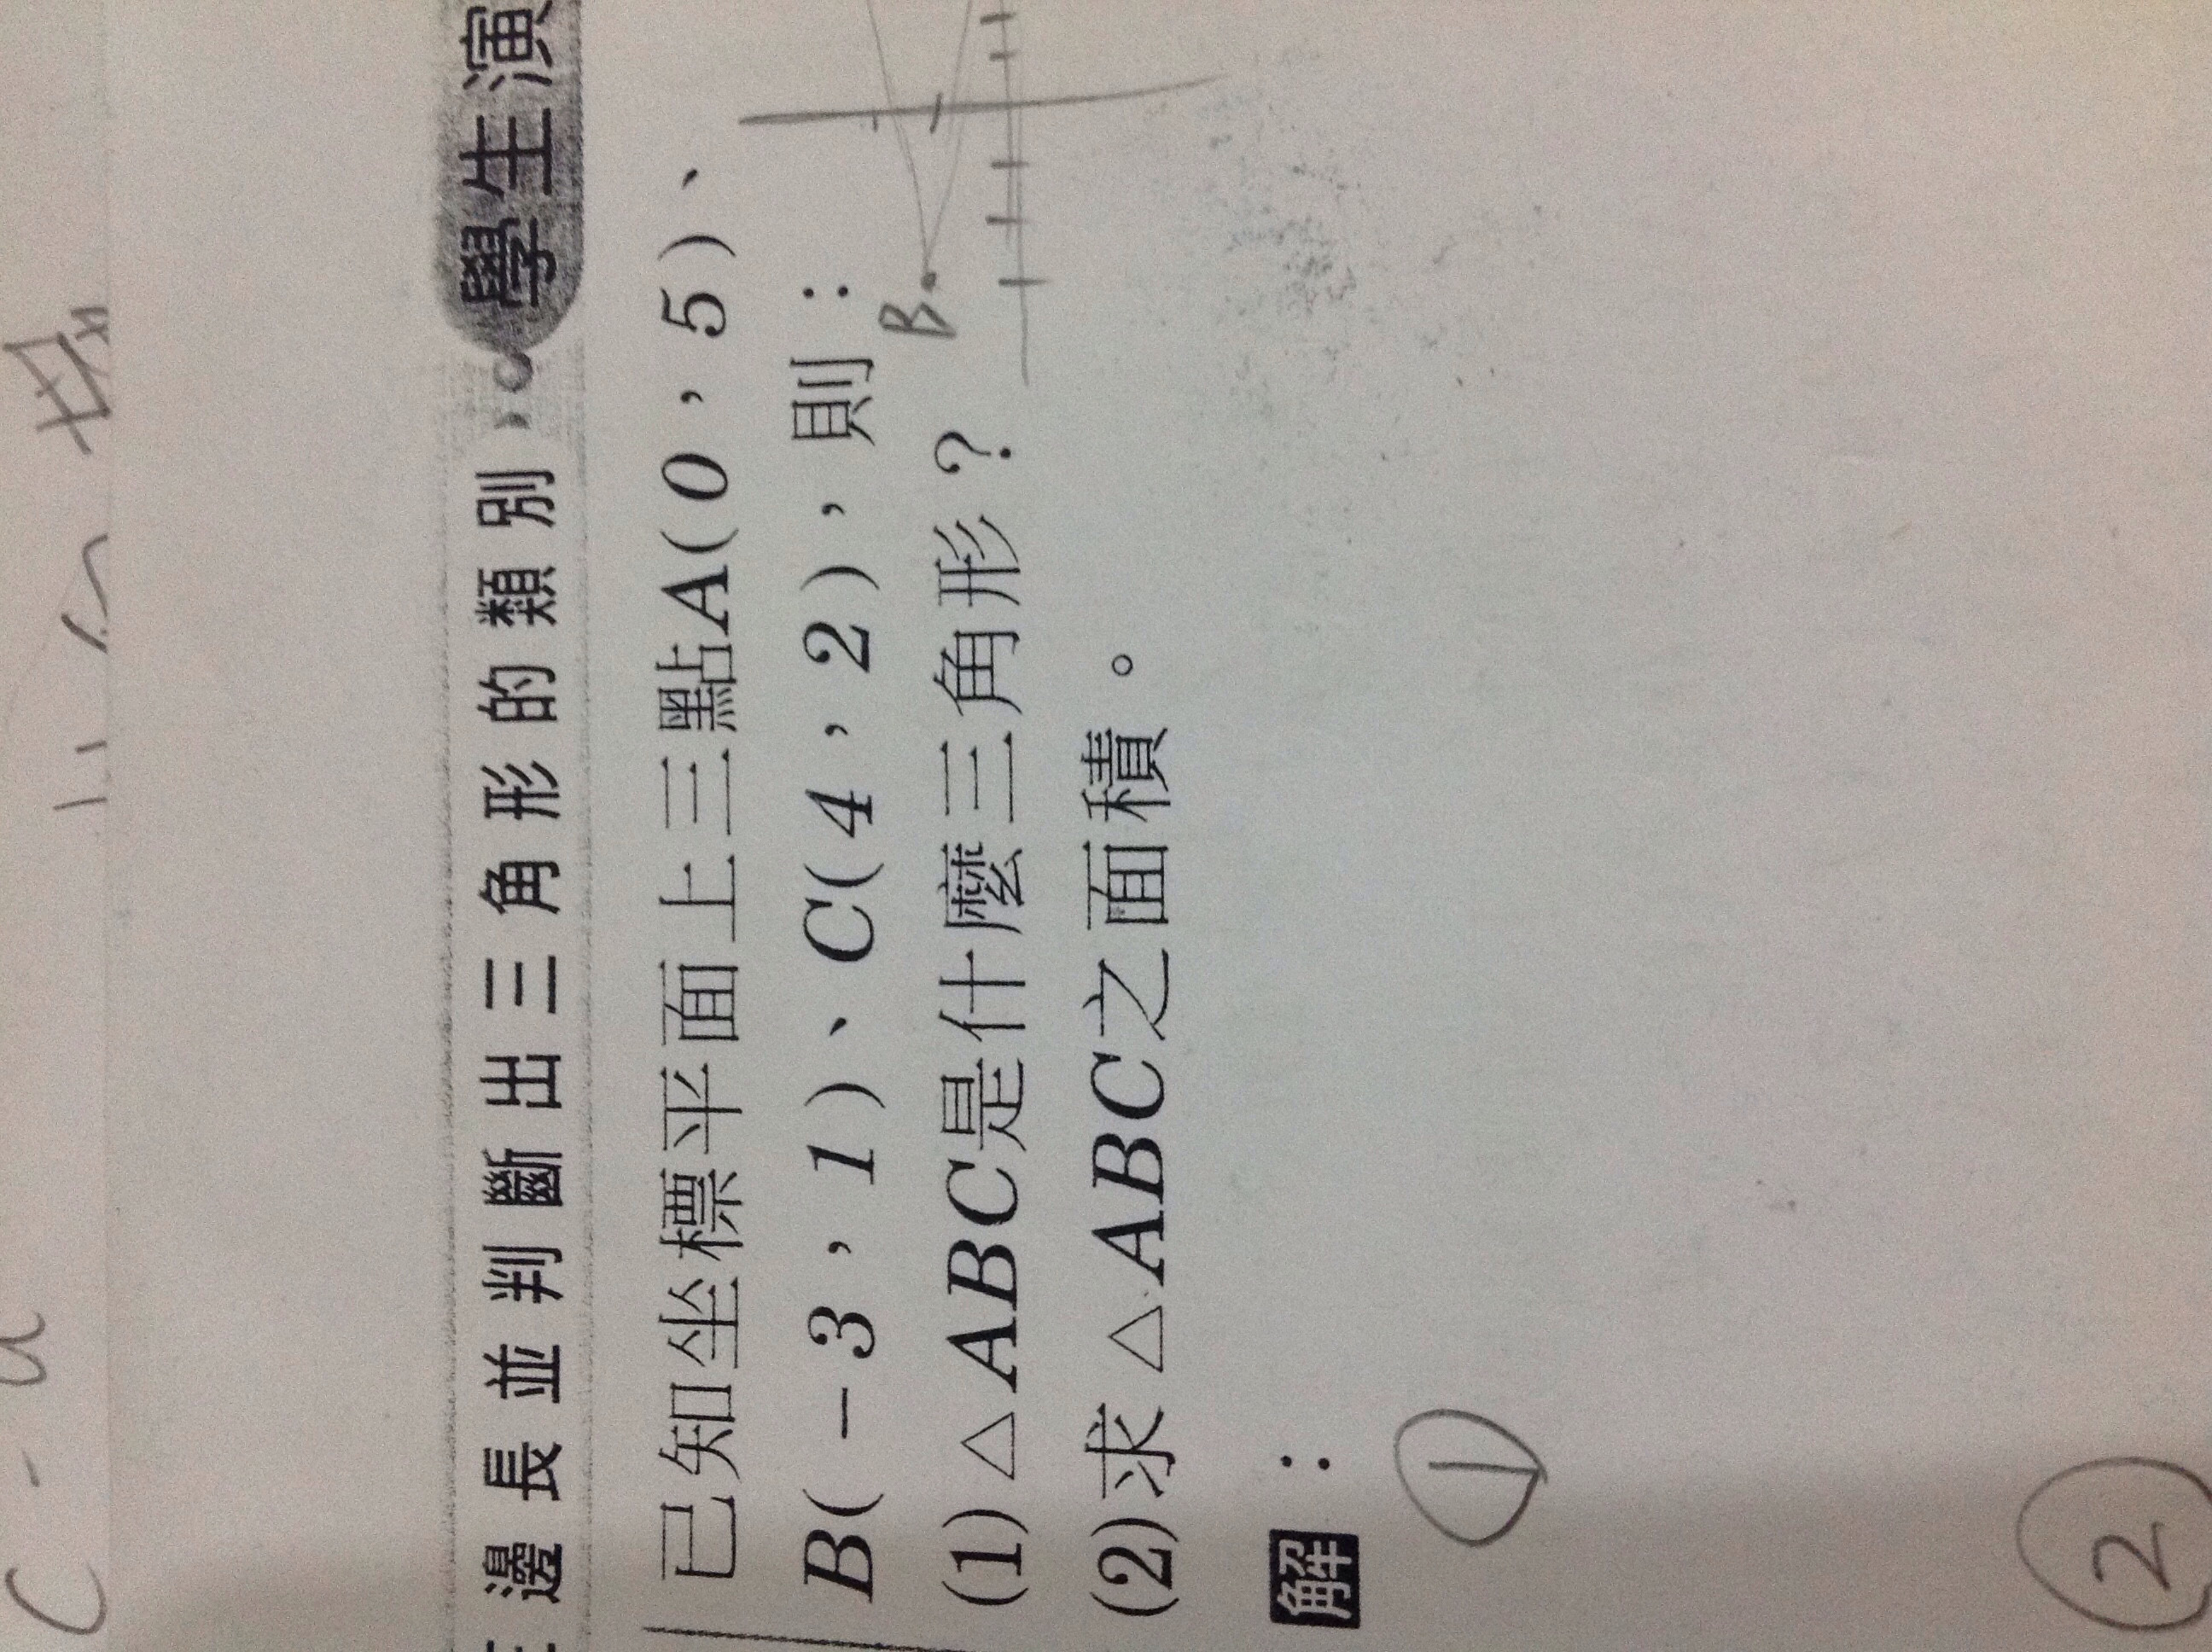 邊長並判斷出三角形的類別 學生演
已知坐標平面上三點A(0,5)、
B(-3,1)、C(4,2),則:
(1)△ABC是什麼三角形?
(2)求△ABC之面積。
B
解:
①
②